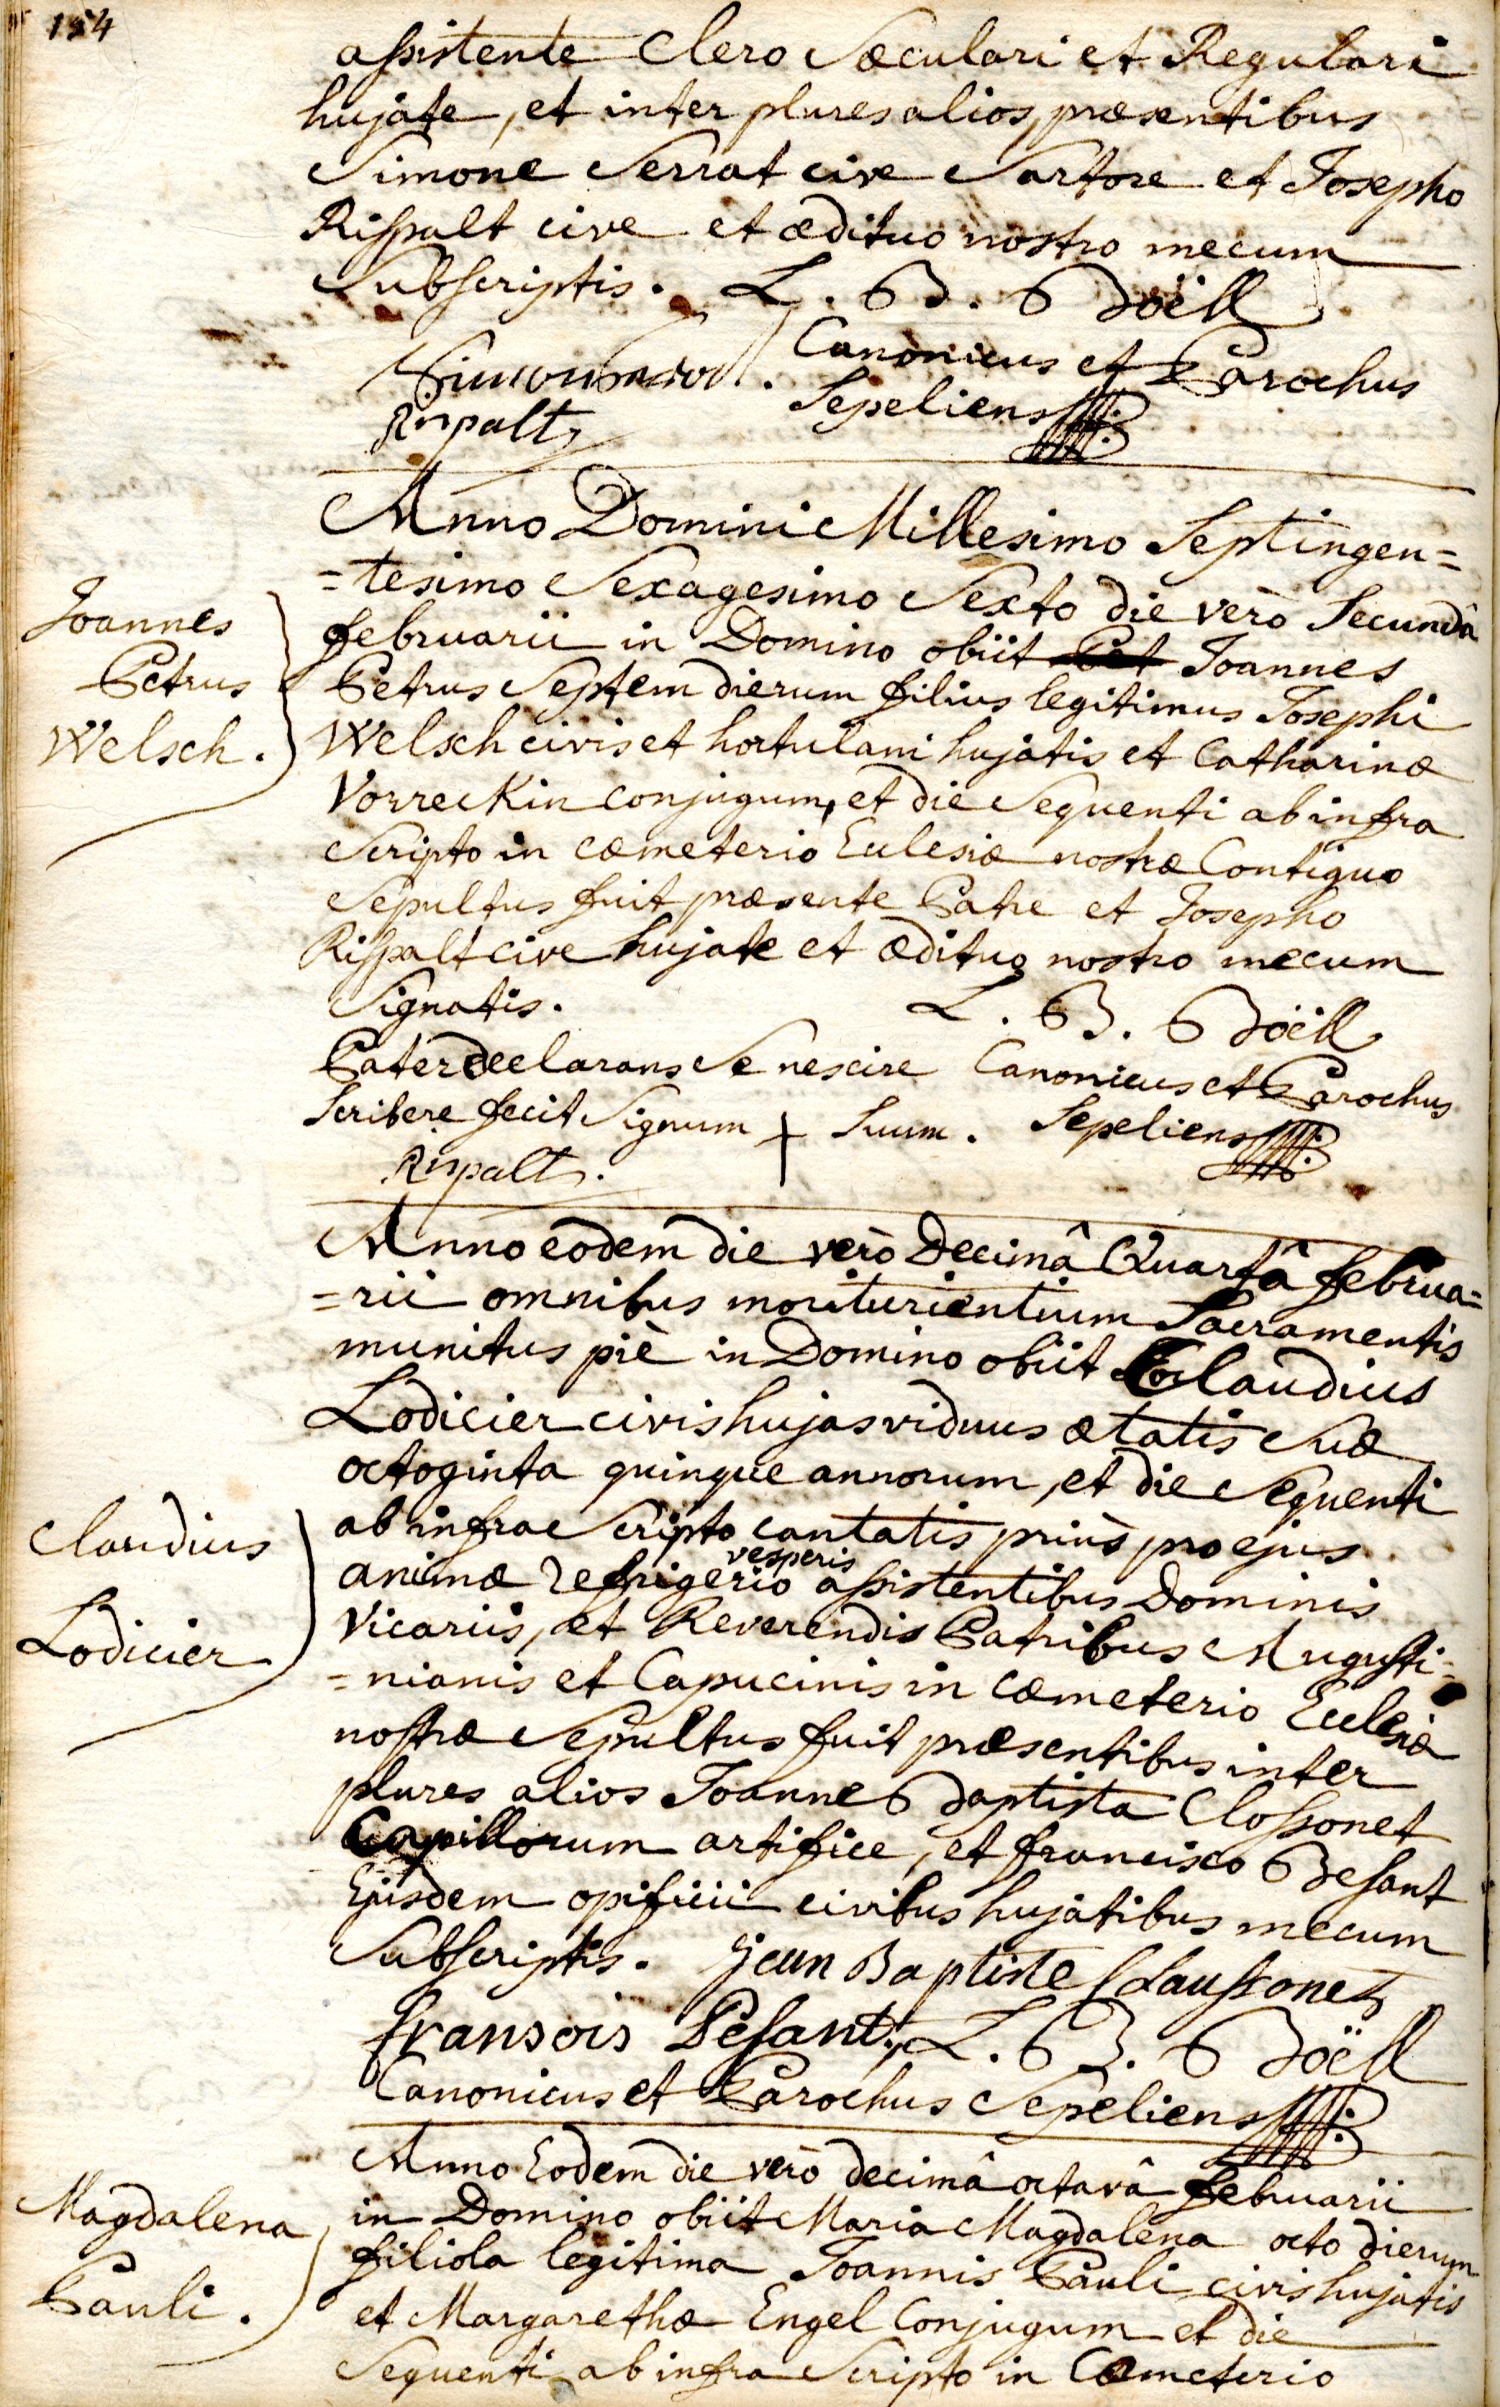 154
assistente Clero Sæculari et Regulari
hujate, et inter plures alios, præsentibus
Simone Serrat cive Sartore et Josepho
Rispalt cive et ædituo nostro mecum
Subscriptis. L. B. Boëll
Canonicus et Parochus
Sepeliens
Rispalt
Anno Domini Millesimo Septingen=
=tesimo Sexagesimo Sexto die verò Secundâ
februarii in Domino obiit Pet Joannes
Petrus Septem dierum filius legitimus Josephi
Welsch civis et hortulani hujatis et Catharinæ
Vorreckin conjugum, et die Sequenti ab infra
Scripto in cœmeterio Ecclesiæ nostræ Contiguo
Sepultus fuit præsente Patre et Josepho
Rispalt cive hujate et ædituo nostro mecum
Signatis. L. B. Boëll
Pater declarans Se nescire Canonicus et Parochus
Scribere fecit Signum + Suum. Sepeliens
Rispalt.
Joannes
Petrus
Welsch.
Anno eodem die verò Decimâ Quartâ februa=
=rii omnibus moriturientium Sacramentis
munitus piè in Domino obiit Claudius
Lodicier civis hujas viduus ætatis Suæ
octoginta quinque annorum, et die Sequenti
ab infra Scripto cantatis priùs pro ejus
animæ refrigerio vesperis assistentibus Dominis
Vicariis, et Reverendis Patribus Augusti=
=nianis et Capucinis in cœmeterio Ecclesiæ
nostræ Sepultus fuit præsentibus inter
plures alios Joanne Baptista Clossonet
Capillorum artifice, et francisco Besant
Ejusdem opificii civibus hujatibus mecum
Subscriptis. Jean Baptiste Claussonet
fransois Besant. L. B. Boëll
Canonicus et Parochus Sepeliens
Claudius
Lodicier
Anno Eodem die verò decimâ octavâ februarii
in Domino obiit Maria Magdalena octo dierum
filiola legitima Joannis Pauli civis hujatis
et Margarethæ Engel Conjugum et die
Sequenti ab infra Scripto in Cœmeterio
Magdalena
Pauli.